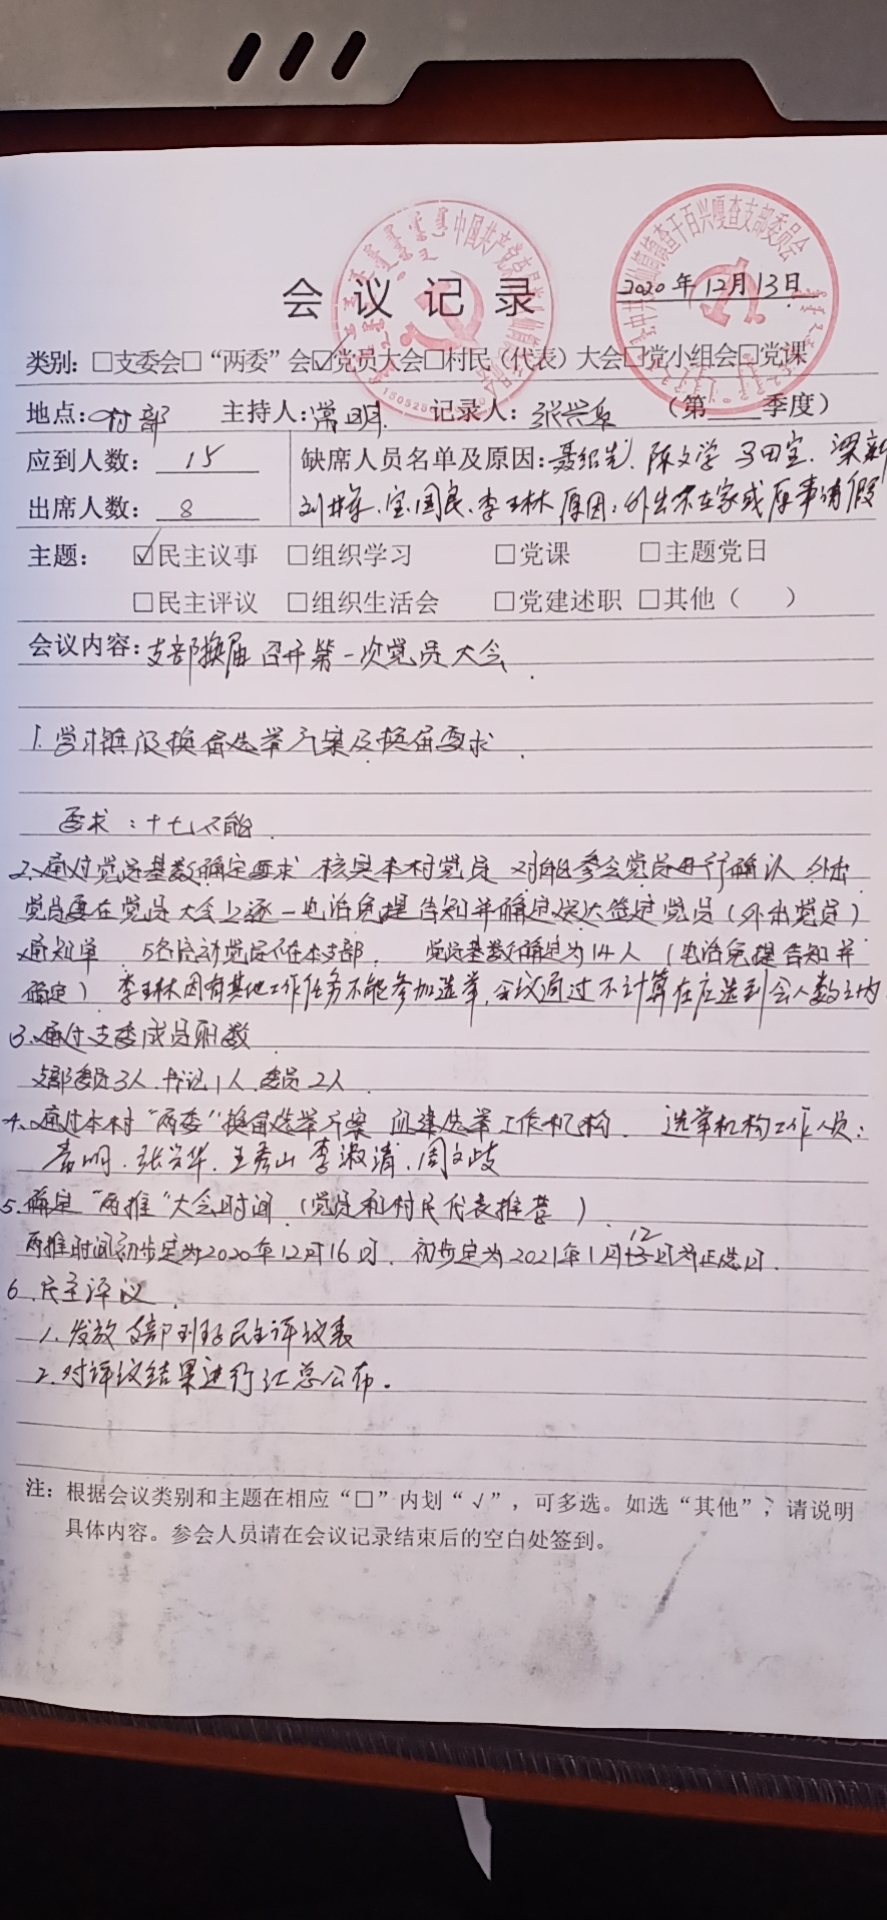 会议记录
2020年12月13日
类别：□支委会□“两委”会☑党员大会□村民（代表）大会□党小组会□党课
地点：村部 主持人：常明 记录人：张兴 （第 季度）
应到人数：15 缺席人员名单及原因：聂绍光、陈文学 马田宝、梁
出席人数：8 刘井军、宝国民、李玉林 原因：外出不在家或有事请假
主题：☑民主议事 □组织学习 □党课 □主题党日
□民主评议 □组织生活会 □党建述职 □其他（ ）
会议内容：支部换届召开第一次党员大会.
1.学习镇级换届选举方案及换届要求.
要求：十七不能.
2.通过党员基数确定要求 核实本村党员 对能参会党员进行确认 外出
党员要在党员大会上逐一电话免提告知并确定送达签定党员（外出党员）
通知单 5名流动党员不在本支部. 党员基数确定为14人（电话免提告知并
确定）李玉林因有其他工作任务不能参加选举,会议通过不计算在应选到会人数之内
3.通过支委成员职数
支部委员3人.书记1人.委员2人.
4.通过本村“两委”换届选举方案 组建选举工作机构. 选举机构工作人员：
常明.张兴华.王秀山 李淑清.周文岐
5.确定“两推”大会时间（党员和村民代表推荐）.
两推时间初步定为2020年12月16日. 初步定为2021年1月12日为正选日.
6.民主评议.
1.发放支部班子民主评议表
2.对评议结果进行汇总公布.
注：根据会议类别和主题在相应“□”内划“√”，可多选。如选“其他”，请说明
具体内容。参会人员请在会议记录结束后的空白处签到。